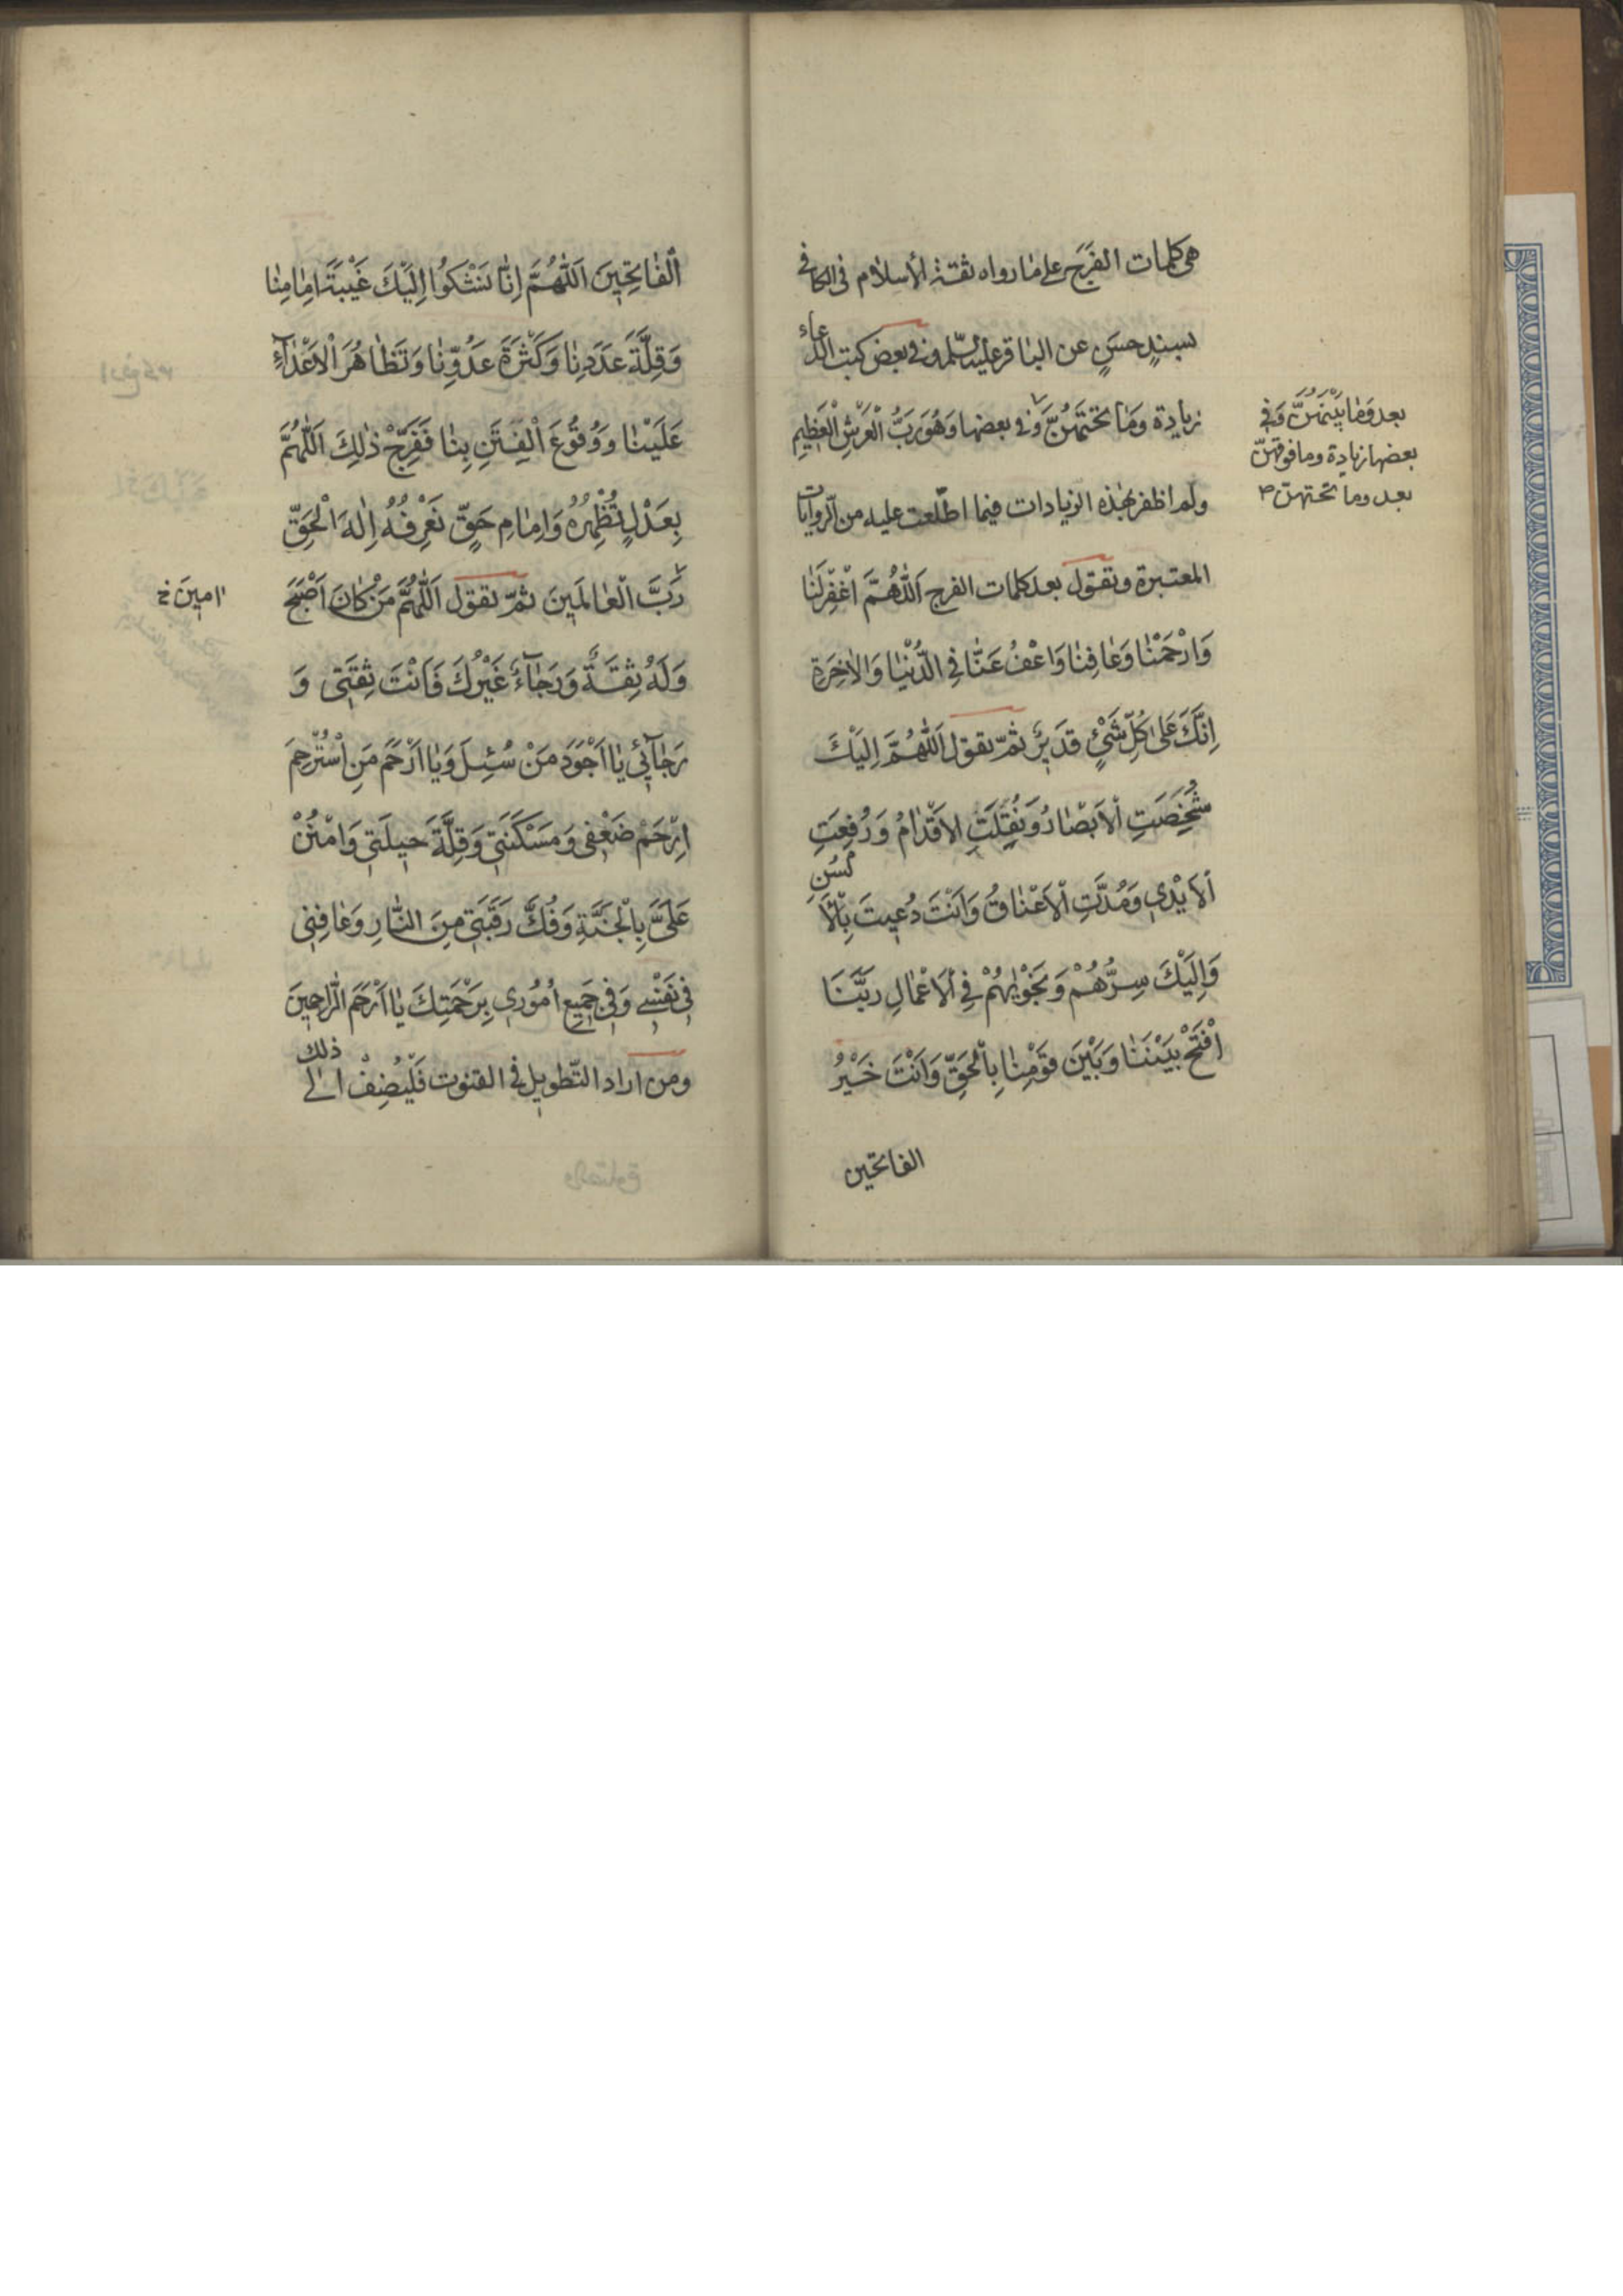 هى كلمات الفَرَج على مٰا رواه ثقة الأسلام فى الكافى
بسندٍ حسَنٍ عن البٰاقر عليه السّلم و فى بعض كتب الدّعاء
زيادة وَمٰا تحْتَهُنَّ وَ فى بعضها وَهُوَ رَبُّ الْعَرْشِ الْعَظٖيمِ
بعد وَمٰا بَيْنَهُنَّ وَفى
بعضها زيادة وما فوقهنّ
بعد وما تحتهنّ ص
ولم اظفر بهٰذه الزيادات فيما اطّلعت عليه من الرّوايات
المعتبرة وتقول بعد كلمات الفرج اَللّٰهُمَّ اغْفِرْ لَنٰا
وَارْحَمْنٰا وَعٰافِنٰا وَاعْفُ عَنّٰا فِى الدُّنْيٰا وَالْاٰخِرَةِ
اِنَّكَ عَلىٰ كُلِّ شَىْءٍ قَدٖيرٌ ثمّ تقول اَللّٰهُمَّ اِلَيْكَ
شَخَصَتِ الْاَبْصٰارُ وَنُقِلَتِ الْاَقْدٰامُ وَرُفِعَتِ
اْلاَيْدٖى وَمُدَّتِ اْلاَعْنٰاقُ وَاَنْتَ دُعٖيتَ بِالْاَلْسُنِ
وَاِلَيْكَ سِرُّهُمْ وَنَجْوٰيهُمْ فِى اْلاَعْمٰالِ رَبَّنَا
افْتَحْ بَيْنَنٰا وَبَيْنَ قَوْمِنٰا بِالْحَقِّ وَاَنْتَ خَيْرُ
الفاتحين
الْفٰاتِحٖينَ اَللّٰهُمَّ اِنّٰا نَشْكُوا اِلَيْكَ غَيْبَةَ اِمٰامِنٰا
وَقِلَّةَ عَدَدِنٰا وَكَثْرَةَ عَدُوِّنٰا وَتَظٰاهُرَ الْاَعْدٰآءِ
عَلَيْنٰا وَوُقُوعَ الْفِتَنِ بِنٰا فَفَرِّجْ ذٰلِكَ اَللّٰهُمَّ
بِعَدْلٍ تُظْهِرُهُ وَاِمٰامِ حَقٍّ نَعْرِفُهُ اِلٰهَ الْحَقِّ
رَبَّ الْعٰالَمٖينَ ثمّ تقول اَللّٰهُمَّ مَنْ كٰانَ اَصْبَحَ
اٰمٖينَ خ
وَلَهُ ثِقَةٌ وَرَجٰآءٌ غَيْرُكَ فَاَنْتَ ثِقَتٖى وَ
رَجٰآئٖى يٰا اَجْوَدَ مَنْ سُئِلَ وَيٰا اَرْحَمَ مَنِ اسْتُرْحِمَ
اِرْحَمْ ضَعْفٖى وَمَسْكَنَتٖى وَقِلَّةَ حٖيلَتٖى وَامْنُنْ
عَلَىَّ بِالْجَنَّةِ وَفُكَّ رَقَبَتٖى مِنَ النّٰارِ وَعٰافِنٖى
فٖى نَفْسٖى وَفٖى جَمٖيعِ اُمُورٖى بِرَحْمَتِكَ يٰا اَرْحَمَ الرّٰاحِمٖينَ
ومن اراد التّطويل فى القنوت فَلْيُضِفْ الىٰ ذلك